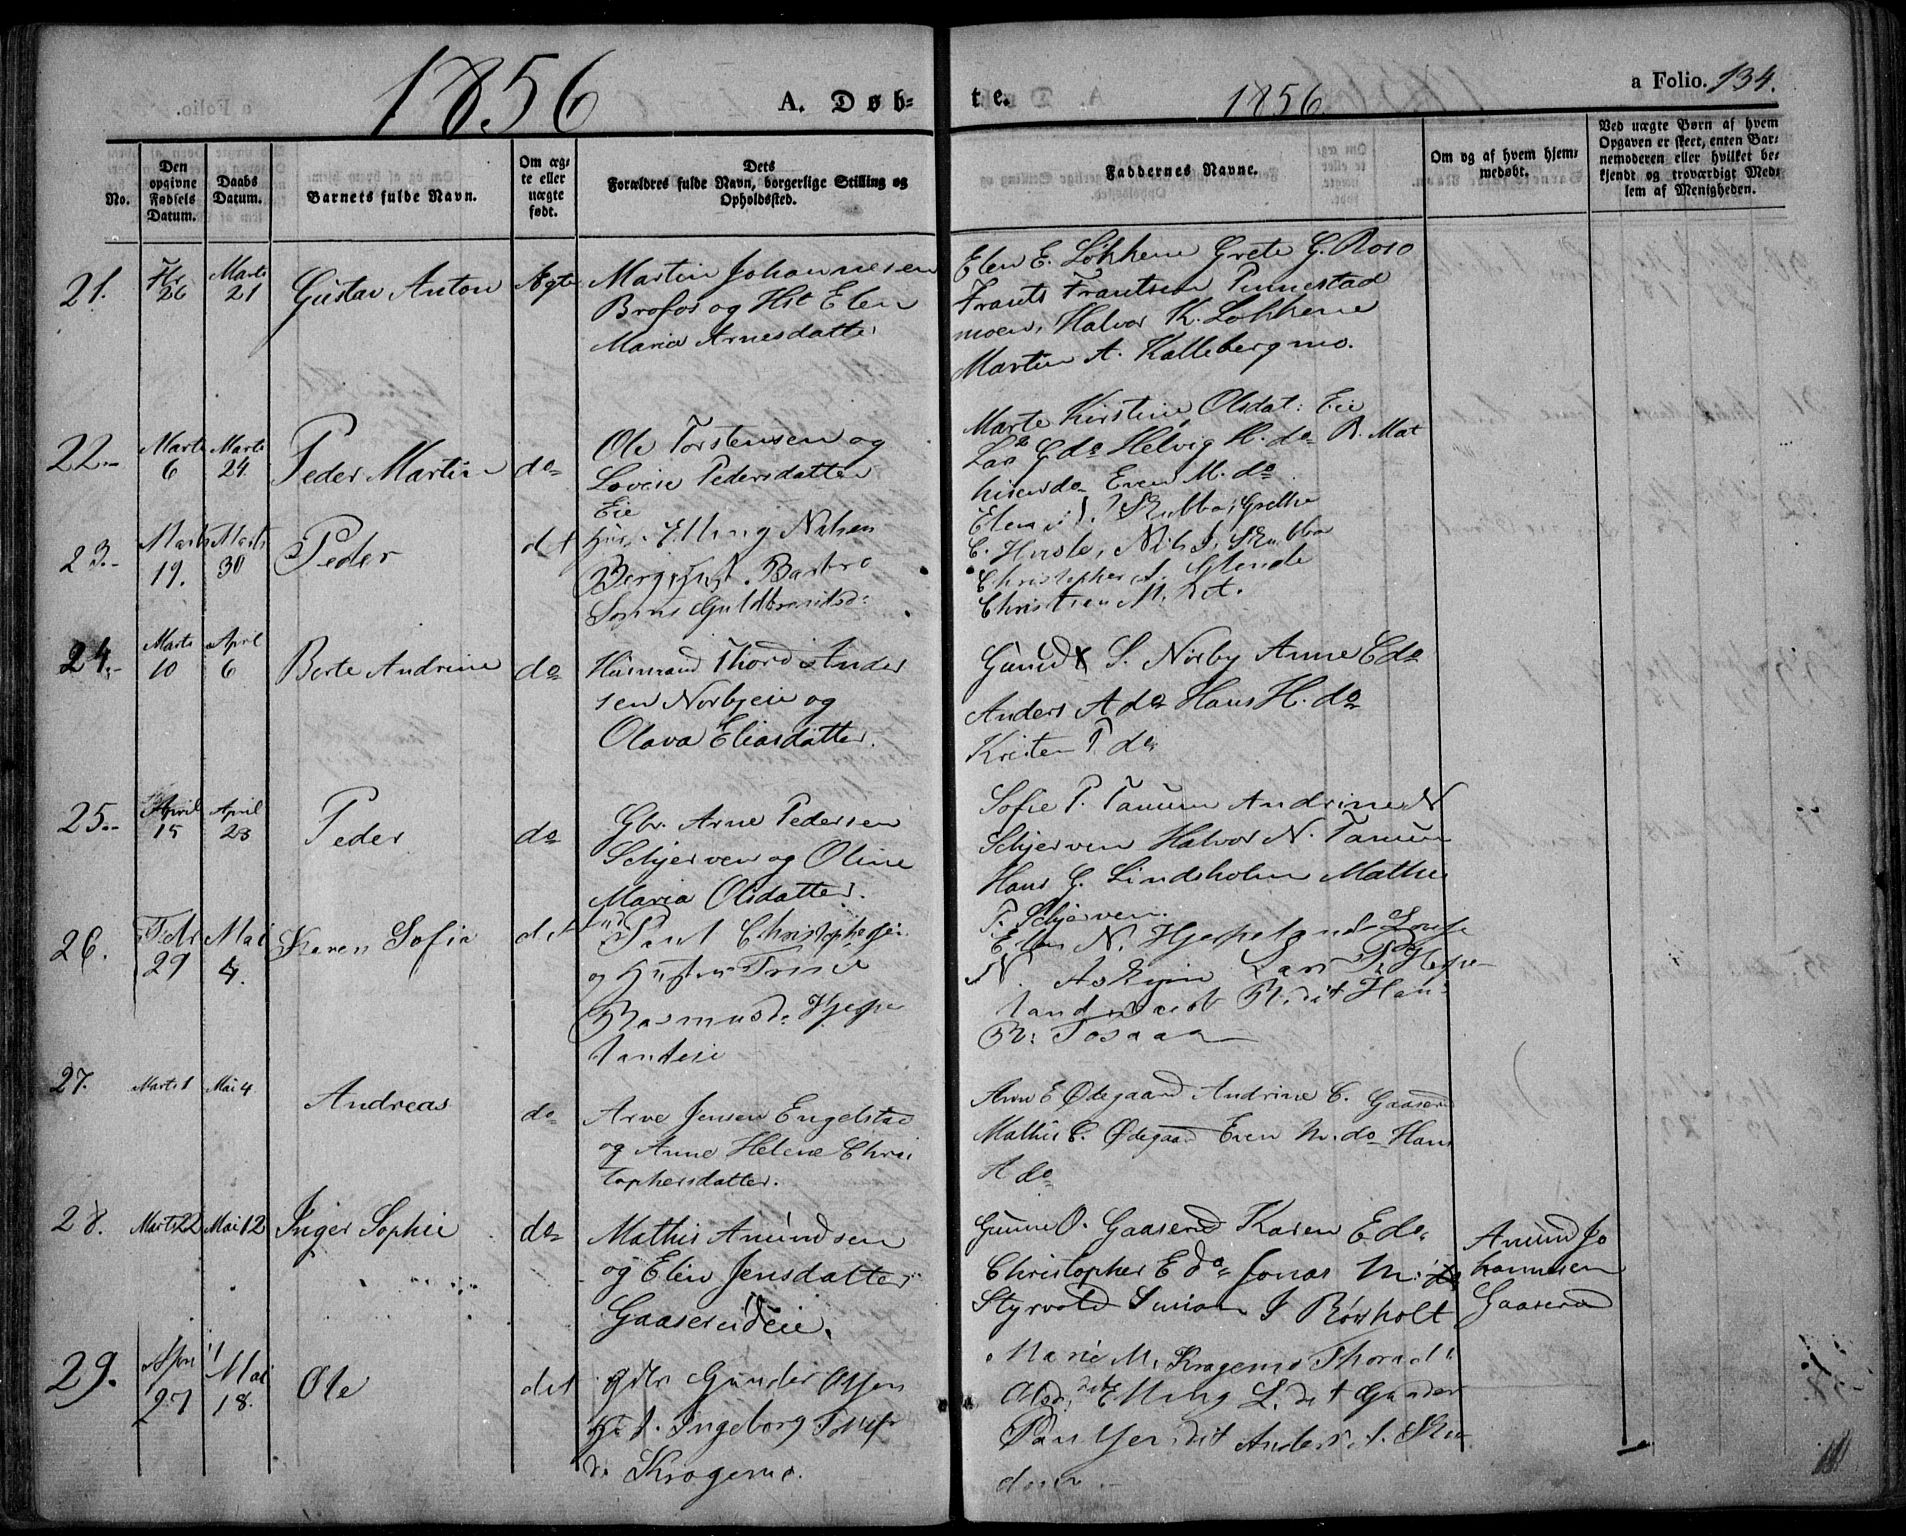 1856
A. Døb-
te.
1856.
a Folio. 134.
No.
Den opgivne Fødsels Datum.
Daabs Datum.
Barnets fulde Navn.
Om ægte eller uægte født.
Dets Forældres fulde Navn, borgerlige Stilling og Opholdssted.
Faddernes Navne.
Om og af hvem hjemmedøbt.
Ved uægte Børn af hvem Opgaven er skeet, enten Barnemoderen eller hvilket bekjendt og troværdigt Medlem af Menigheden.
21.
Fbr 26
Marts 21
Gustav Anton
Ægte
Martin Johannesen
Brofos og Hst Elen
Maria Arnesdatter
Elen E. Løkkene Grete G. Roso
Frants Frantsen Pinnestad
moen, Halvor K. Løkkene
Martin A. Kallebergmo.
22.
Marts 6
Marts 24
Peder Martin
do
Ole Torstensen og
Lovise Pedersdatter
Eie
Marte Kirstine Olsdat: Eie
Lars G do Helvig H. do R. Mat
hisen do Even M. do
23.
Marts 19.
Marts 30
Peder
dit
Elling Nilsen
Barbro
Guldbrandsd:
Elen Skubba, Grethe
C. Nils Skubba
Christopher A. Glende
Christian M. dit.
24.
Marts 10
April 6
Berte Andrine
do
Husmand Thord Ander
sen Norbyeie og
Olava Eliasdatter.
Gunild S. Norby Anne E do
Anders A do Hans H. do
Kristen P. do
25.
April 15
April 23
Peder
do
Gbr. Arne Pedersen
Schjerven og Oline
Maria Olsdatter.
Sofie P. Tanum Andrine N
Schjerven Halvor N. Tanum
Hans G. Lindsholm Mathis
P. Schjerven.
26.
Febr 29
Mai 4.
Karen Sofie
dit
Poul Christophersen
og Hustru Trine
Rasmusd: Hjespe
landeie
N. Hjespeland
N. Lars R. Hespe
land Jacob R. dit Hans
R:
27.
Marts 1
Mai 4
Andreas
do
Arve Jensen Engelstad
og Anne Helene Chris
tophersdatter.
Anne E Ødegaard Andrine C. Gaaserud
Mathis C. Ødegaard Even M. do Hans
A do
28.
Marts 22
Mai 12
Inger Sophie
do
Mathis Amundsen
og Elen Jensdatter
Gaaserudeie.
Gunne O. Gaaserud Karen E do
Christopher E do Jonas M.
Styrvold Simon J Rønholt
Amund Jo
hannesen
Gaaserud
29.
Apri 27
Mai 18.
Ole
dit
Gbr Gunder Olsen
Hst. Ingeborg
Kragemo.
Marie M. Kragemo Thorad
Elling L. dit Gunder
dit Anders A.